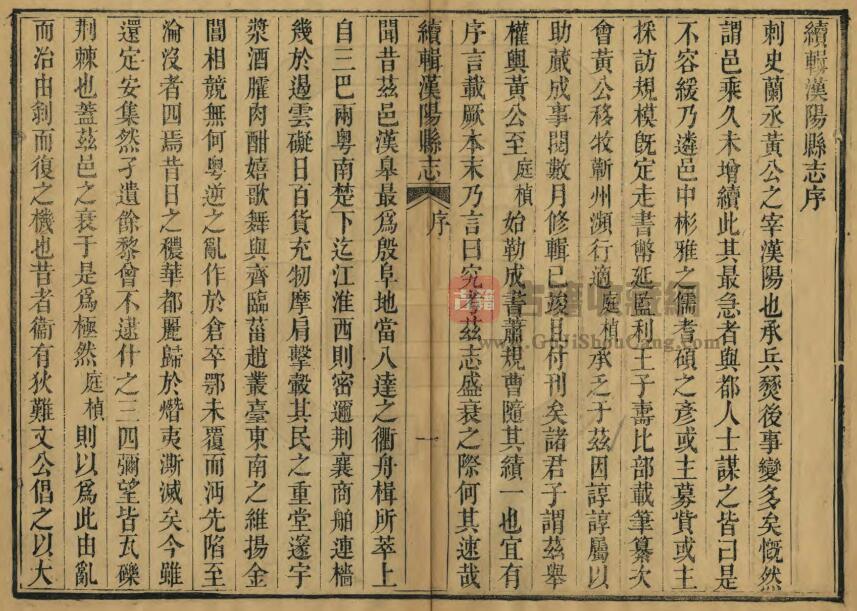 續輯漢陽縣志序
刺史蘭丞黃公之宰漢陽也承兵燹後事變多矣慨然
謂邑乘久未增續此其最急者與都人士謀之皆曰是
不容緩乃遴邑中彬雅之儒耆碩之彥或主募貲或主
採訪規模旣定走書幣延監利王子壽比部載筆纂次
會黃公移牧蘄州瀕行適庭楨承乏于茲因諄諄屬以
助蕆成事閱數月修輯已竣且付刊矣諸君子謂茲舉
權輿黃公至庭楨始勒成書蕭規曹隨其績一也宜有
序言載厥本末乃言曰究考茲志盛衰之際何其速哉
續輯漢陽縣志 序 一
聞昔茲邑漢皋最爲殷阜地當八達之衢舟楫所萃上
自三巴兩粵南楚下迄江淮西則密邇荆襄商舶連檣
幾於遏雲礙日百貨充牣摩肩擊轂其民之重堂邃宇
漿酒臛肉酣嬉歌舞與齊臨菑趙叢臺東南之維揚金
閶相競無何粵逆之亂作於倉卒鄂未覆而沔先陷至
淪沒者四焉昔日之穠華都麗歸於熸夷澌滅矣今雖
還定安集然孑遺餘黎曾不逮什之三四彌望皆瓦礫
荆棘也蓋茲邑之衰于是爲極然庭楨則以爲此由亂
而治由剝而復之機也昔者衞有狄難文公倡之以大
古籍
古籍收藏網
www.GuJiShouCang.com